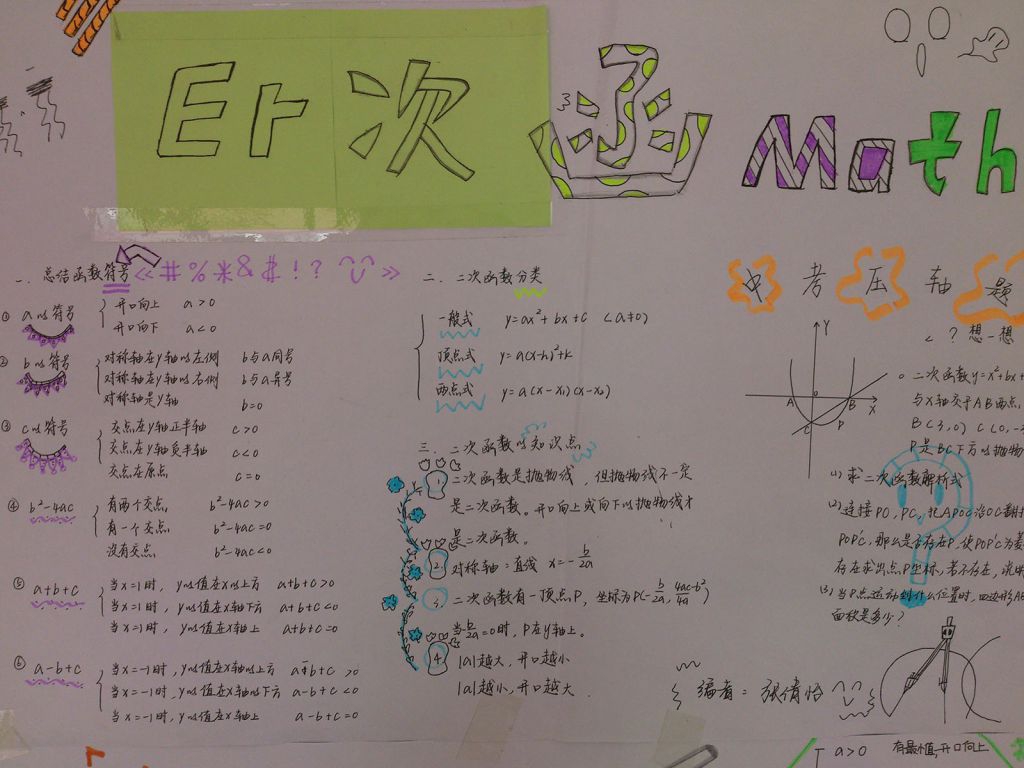 Er次函Math
一、总结函数符号《#%*&$!? 》
① a的符号
开口向上 a>0
开口向下 a<0
② b的符号
对称轴在y轴的左侧 b与a同号
对称轴在y轴的右侧 b与a异号
对称轴是y轴 b=0
③ c的符号
交点在y轴正半轴 c>0
交点在y轴负半轴 c<0
交点在原点 c=0
④ b²-4ac
有两个交点 b²-4ac>0
有一个交点 b²-4ac=0
没有交点 b²-4ac<0
⑤ a+b+c
当x=1时,y的值在x的上方 a+b+c>0
当x=1时,y的值在x轴下方 a+b+c<0
当x=1时,y的值在x轴上 a+b+c=0
⑥ a-b+c
当x=-1时,y的值在x轴的上方 a-b+c>0
当x=-1时,y的值在x轴的下方 a-b+c<0
当x=-1时,y的值在x轴上 a-b+c=0
二、二次函数分类
一般式 y=ax²+bx+c (a≠0)
顶点式 y=a(x-h)²+k
两点式 y=a(x-x₁)(x-x₂)
三、二次函数的知识点
1 二次函数是抛物线,但抛物线不一定
是二次函数。开口向上或向下的抛物线才
是二次函数。
2 对称轴=直线 x=-b/2a
3, 二次函数有一顶点P,坐标为P(-b/2a, 4ac-b²/4a)
当b/2a=0时,P在y轴上。
4 |a|越大,开口越小
|a|越小,开口越大.
中考压轴题
<?想一想
Y
A B X
C P
二次函数y=x²+bx+
与X轴交于AB两点,
B(3,0) C(0,-
P是BC下方的抛物
(1) 求二次函数解析式
(2) 连接PO,PC,把△POC沿OC翻
POP'C,那么是否存在P,使POP'C为菱
存在求出点P坐标,若不存在,说
(3) 当P点运动到什么位置时,四边形AB
面积是多少?
编者=张倩
a>0 有最小值,开口向上